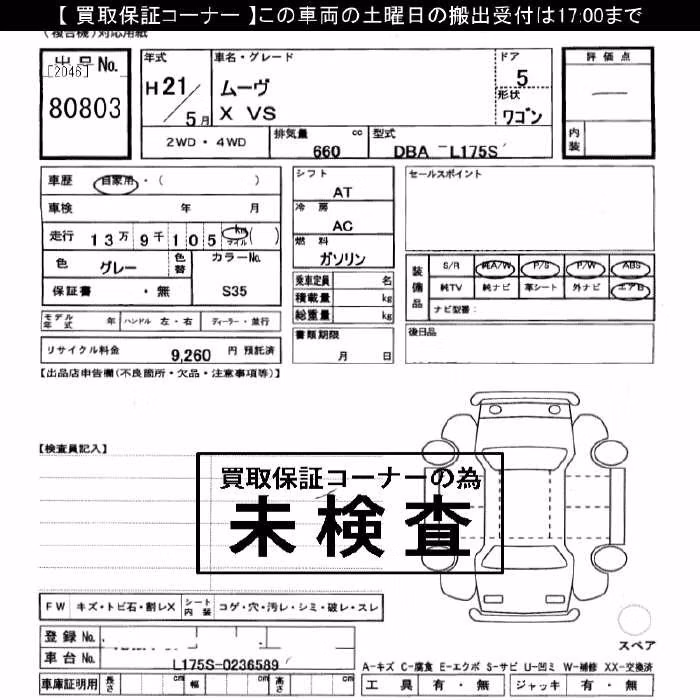 【 買取保証コーナー 】この車両の土曜日の搬出受付は17:00まで
(複合機)対応用紙
出品No.
[2046]
80803
年式
H 21/5月
車名・グレード
ムーヴ
X VS
ドア
5
形状
ワゴン
評価点
内装
2WD・4WD
排気量 cc
660
型式
DBA L175S
車歴 自家用・( )
車検 年 月
走行 13万9千105 km マイル ( )
色 グレー
色替
カラーNo.
S35
保証書 ・無
モデル年式 年 ハンドル 左・右 ディーラー・並行
リサイクル料金 9,260 円 預託済
シフト
AT
冷房
AC
燃料
ガソリン
乗車定員 名
積載量 kg
総重量 kg
書類期限
月 日
セールスポイント
装備品
S/R 純A/W P/S P/W ABS
純TV 純ナビ 革シート 外ナビ エアB
ナビ型番:
後日品
【出品店申告欄(不良箇所・欠品・注意事項等)】
【検査員記入】
買取保証コーナーの為
未検査
FW キズ・トビ石・割レX シート内装 コゲ・穴・汚レ・シミ・破レ・スレ
登録No.
車台No. L175S-0236589
車庫証明用 長さ cm 幅 cm 高さ cm
スペア
A-キズ C-腐食 E-エクボ S-サビ U-凹ミ W-補修 XX-交換済
工具 有・無 ジャッキ 有・無